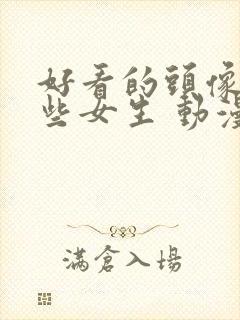 好看的頭像
些女生 動漫
滿倉入場